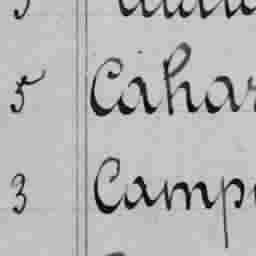 5 Cahar
3 Camp